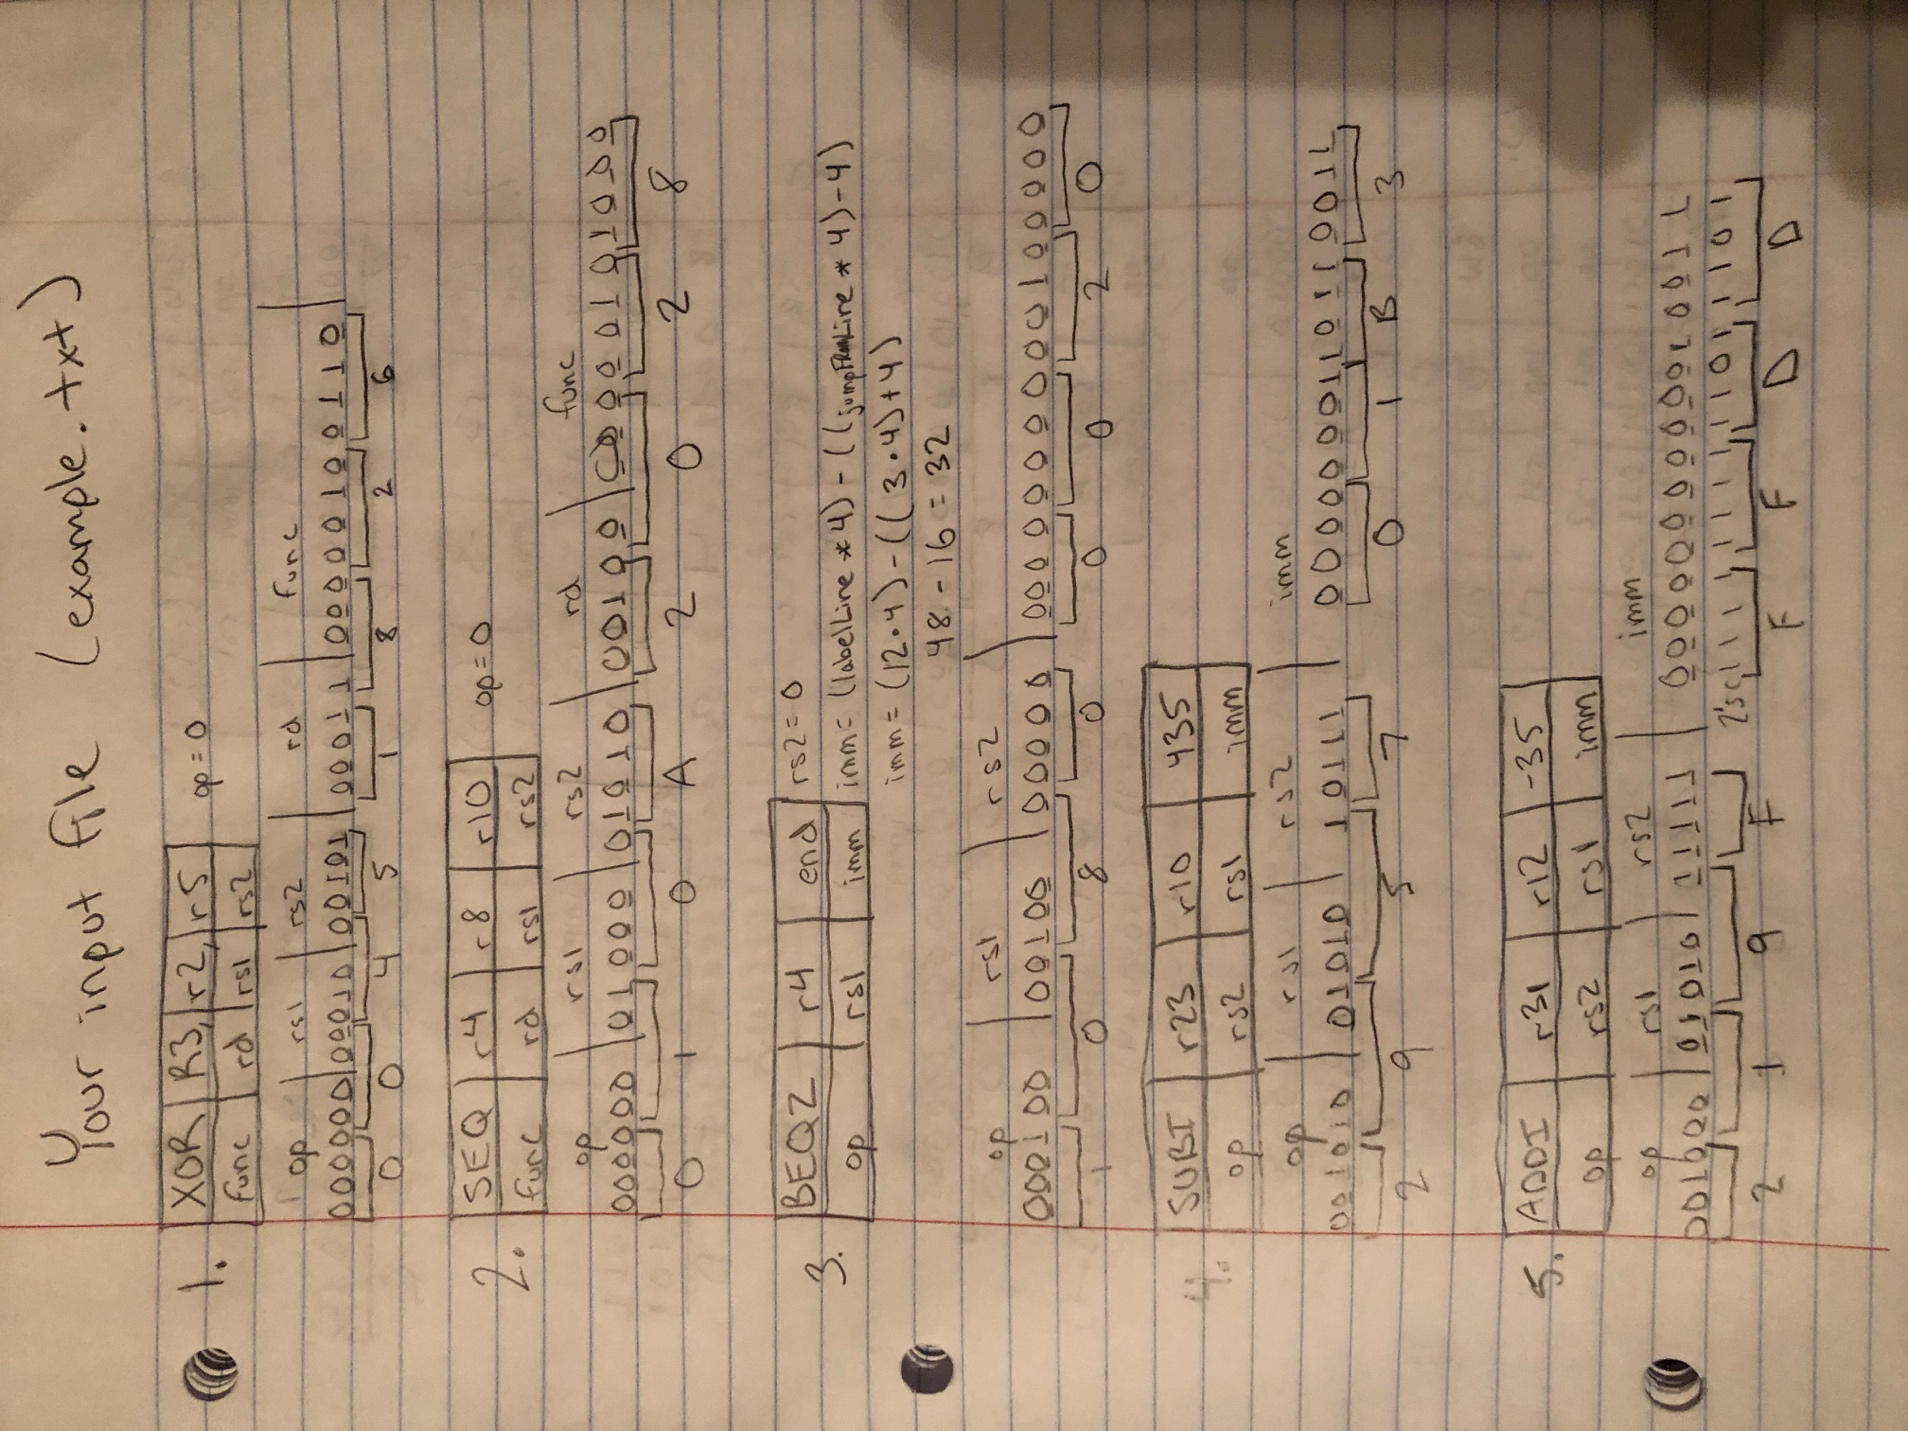 Your input file (example.txt)
1. XOR R3, r2, r5 op=0
func rd rs1 rs2
op rs1 rs2 rd func
000000 00010 00101 00011 00000100110
0 0 4 5 1 8 2 6
2. SEQ r4 r8 r10 op=0
func rd rs1 rs2
op rs1 rs2 rd func
000000 01000 01010 00100 00000101000
0 1 0 A 2 0 2 8
3. BEQZ r4 end rs2=0
op rs1 imm imm=(labelLine*4)-((jumpFrmLine*4)-4)
imm=(12·4)-((3·4)+4)
48-16=32
op rs1 rs2
000100 00100 00000 0000000000100000
1 0 8 0 0 0 2 0
4. SUBI r23 r10 435
op rs2 rs1 imm
op rs1 rs2 imm
001010 01010 10111 0000000110110011
2 9 5 7 0 1 B 3
5. ADDI r31 r12 -35
op rs2 rs1 imm
op rs1 rs2 imm
001000 01010 11111
2'sc 1111 1111 1101 1101
2 1 9 F F F D D